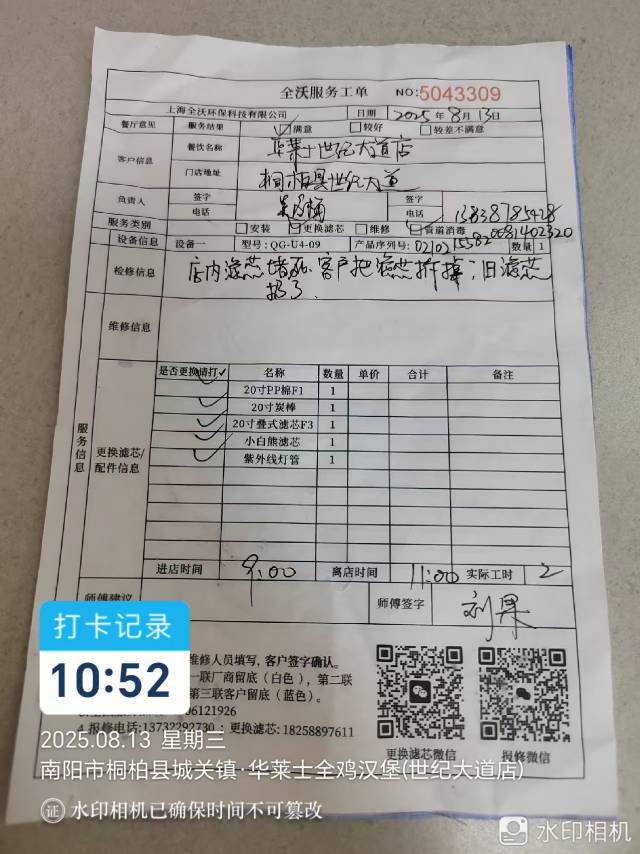 全沃服务工单 NO:5043309
上海全沃环保科技有限公司 日期 2025年8月13日
餐厅意见 服务结果 ☑满意 □较好 □较差不满意
客户信息 餐饮名称 华莱士世纪大道店
门店地址 桐柏县世纪大道
负责人 签字 签字
电话 电话 13838785428
服务类别 □安装 ☑更换滤芯 □维修 ☑管道消毒
设备信息 设备一 型号:QG-U4-09 产品序列号: 数量 1
检修信息 店内滤芯堵死.客户把滤芯拆掉;旧滤芯
扔了.
维修信息
服务信息
更换滤芯/配件信息
是否更换请打✓ 名称 数量 单价 合计 备注
✓ 20寸PP棉F1 1
✓ 20寸炭棒 1
✓ 20寸叠式滤芯F3 1
✓ 小白熊滤芯 1
✓ 紫外线灯管 1
进店时间 9:00 离店时间 11:00 实际工时 2
师傅建议 师傅签字 刘果
维修人员填写,客户签字确认。
一联厂商留底(白色),第二联
第三联客户留底(蓝色)。
06121926
4.报修电话:13732292730;更换滤芯:18258897611
更换滤芯微信 报修微信
打卡记录
10:52
2025.08.13 星期三
南阳市桐柏县城关镇·华莱士全鸡汉堡(世纪大道店)
证 水印相机已确保时间不可篡改
水印相机